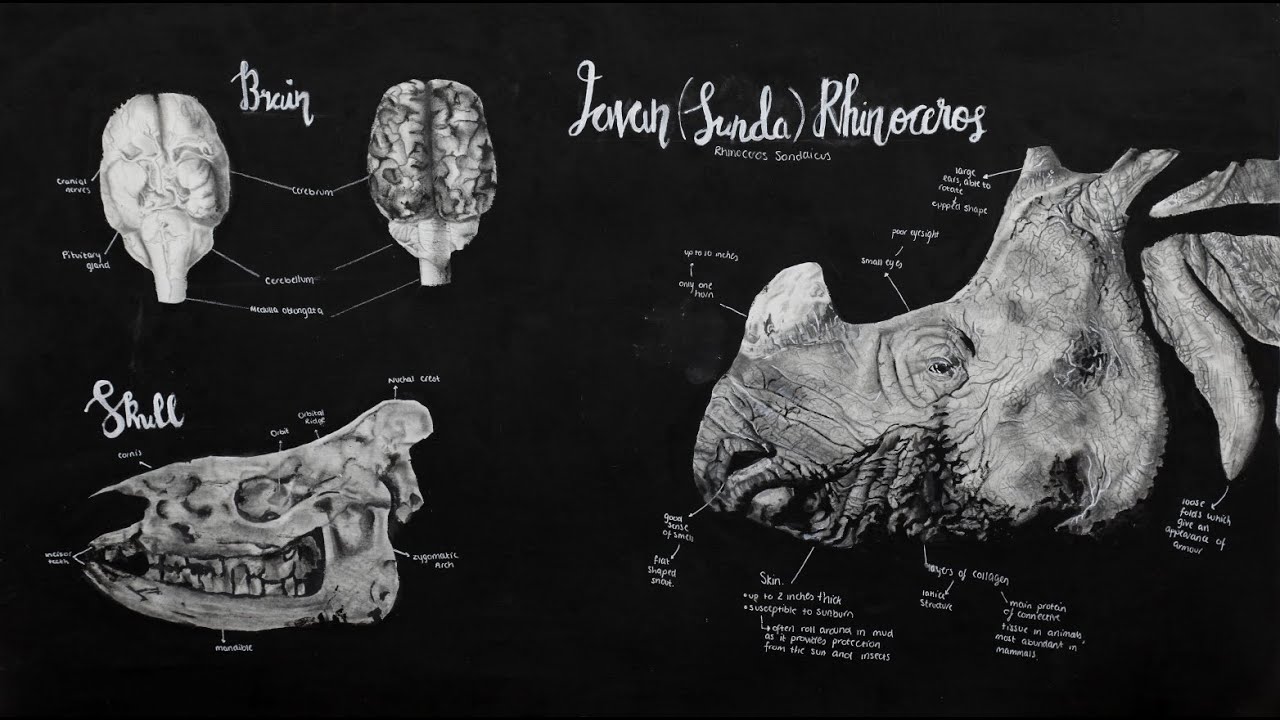 Brain
Cranial
nerves
Pituitary
gland
Cerebrum
Cerebellum
Medulla oblongata
Skull
cornis
Orbit
Orbital
Ridge
Nuchal Crest
incisor
teeth
zygomatic
Arch
mandible
Javan (Sunda) Rhinoceros
Rhinoceros Sondaicus
large
ears, able to
rotate
cupped shape
poor eyesight
small eyes
up to 10 inches
only one
horn
good
sense
of smell
flat
shaped
snout.
Skin.
• up to 2 inches thick
• susceptible to sunburn
often roll around in mud
as it provides protection
from the sun and insects
layers of collagen
lattice
structure
main protein
of connective
tissue in animals,
most abundant in
mammals.
loose
folds which
give an
appearance of
armour